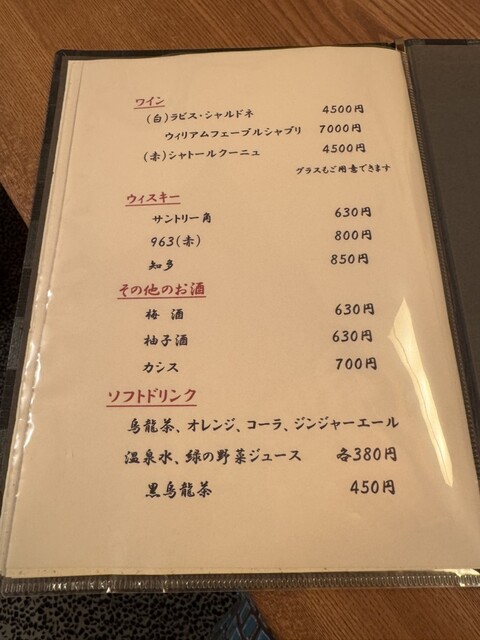 ワイン
(白)ラピス・シャルドネ 4500円
ウィリアムフェーブルシャブリ 7000円
(赤)シャトールクーニュ 4500円
グラスもご用意できます
ウィスキー
サントリー角 630円
963(赤) 800円
知多 850円
その他のお酒
梅 酒 630円
柚子酒 630円
カシス 700円
ソフトドリンク
烏龍茶、オレンジ、コーラ、ジンジャーエール
温泉水、緑の野菜ジュース 各380円
黒烏龍茶 450円